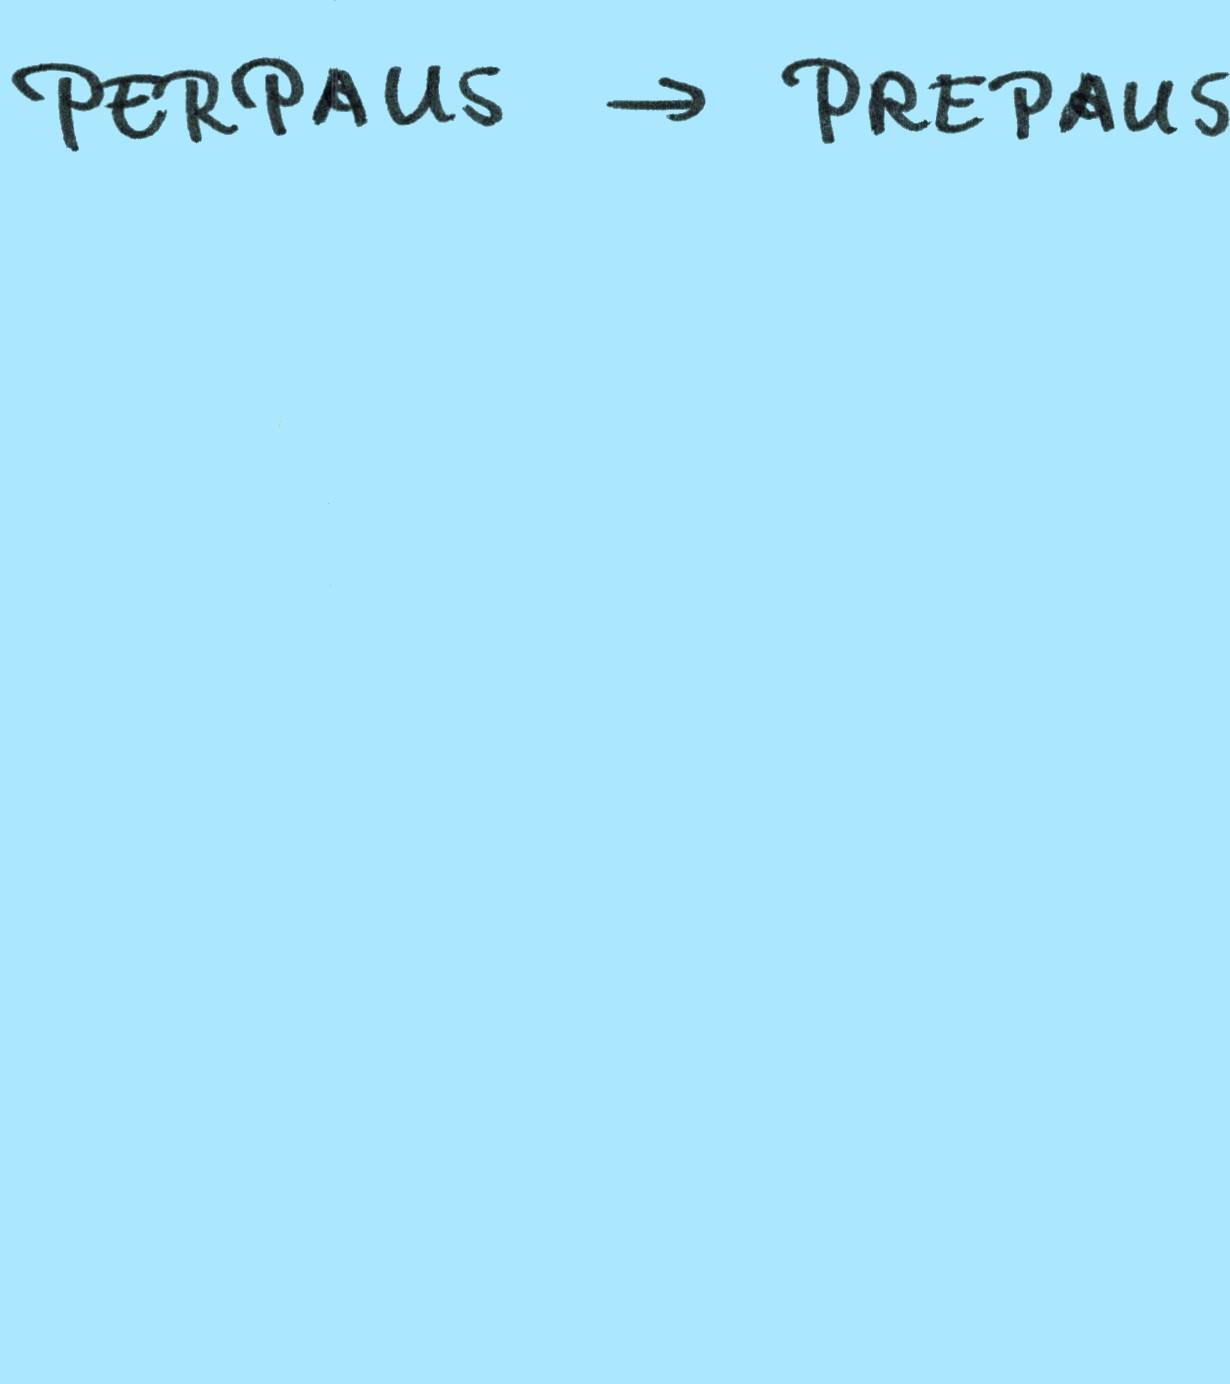 PERPAUS → PREPAUS